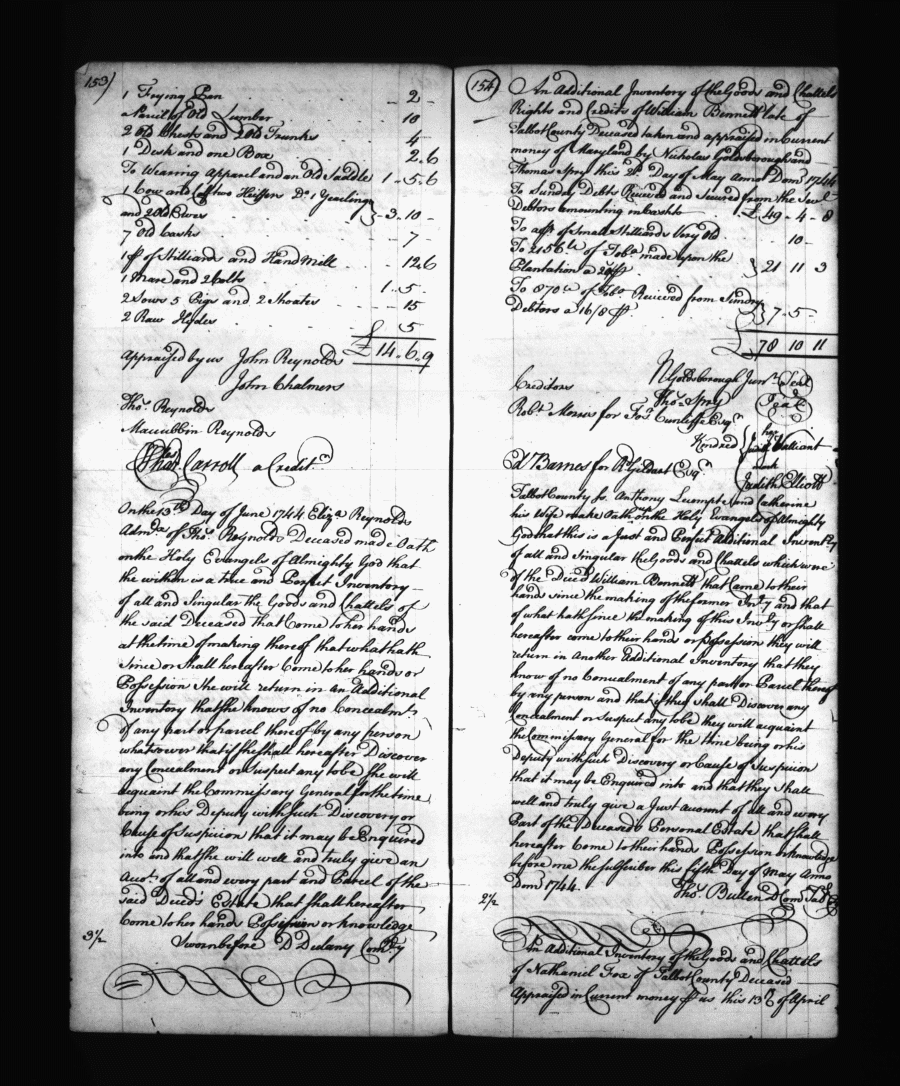 153)
1 Frying Pan - 2 -
a Parcel of Old Lumber 10
2 Old Chests and 2 Old Trunks 4
1 Desk and one Box 2 . 6
To Wearing Apparel and an Old Saddle 1 . 5 . 6
1 Cow and Calf two Heiffers Do 1 Yearling
and 2 Old Ewes } - 3 . 10 -
7 Old Casks - 7 -
1 pr of Stilliards and Hand Mill 12 . 6
1 Mare and 2 Colts 1 . 5 -
2 Sows 5 Pigs and 2 Shoates 15
2 Raw Hydes 5
£ 14 . 6 . 9
Appraised by us John Reynolds
John Chalmers
Thos. Reynolds
Maccubbin Reynolds
Chas Carroll a Creditr
On the 13th Day of June 1744 Eliza Reynolds
Admx of Thos Reynolds Deceased made Oath
on the Holy Evangels of Almighty God that
the within is a true and Perfect Inventory
of all and Singular the Goods and Chattels of
the said Deceased that Come to her hands
at the time of making thereof that what hath
since or shall hereafter Come to her hands or
Possession She will return in An Additional
Inventory that She knows of no Concealmt
Of any part or parcel thereof by any person
whatsoever that if she shall hereafter Discover
any Concealment or suspect any to be She will
acquaint the Commissary General for the time
being or his Deputy with such Discovery or
Cause of Suspicion that it may be Enquired
into and that She will well and truly give an
Acct of all and every part and Parcel of the
said Deced's Estate that shall hereafter
Come to her hands Possession or knowledge
3½ Sworn before D Dulany Comry
154
An Additional Inventory of the Goods and Chattels
Rights and Credits of William Bennett late of
Talbot County Deceased taken and appraised in Current
money of Maryland by Nicholas Goldsborough and
Thomas Spry this 2d Day of May Annoq Dom 1744
To Sundry Debts Received and Secured from the Sevl
Debtors amounting in Cash to £ 49 - 4 - 8
To a pr of Small Stilliards Very Old - 10 -
To 2156 lb of Tobo made upon the
Plantation a 20/ } 21 11 3
To 870 lb of Tobo Received from Sundry
Debtors a 16/8 } 7 - 5 -
£ 78 10 11
N Goldsborough Junr (Seal)
Creditors Thos Spry (Seal)
Robt Morris for Fos Cunliffe Esqr
Kindred { her
Valliant
mark
W Barnes for R Gildart Esqr Judith Elliott
Talbot County ss. Anthony Lecompte and Catherine
his Wife make Oath on the Holy Evangels of Almighty
God that this is a Just and Perfect Additional Inventory
of all and Singular the Goods and Chattels which were
of the Deced William Bennett that Came to their
hands since the making of the former Invry and that
of what hath since the making of this Invry or shall
hereafter come to their hands or Possession they will
return in Another Additional Inventory that they
know of no Concealment of any part or Parcel thereof
by any person and that if they shall Discover any
Concealment or suspect any to be they will acquaint
the Commissary General for the time being or his
Deputy with such Discovery or Cause of Suspicion
that it may be Enquired into and that they shall
well and truly give a Just Account of all and every
Part of the Deceaseds Personal Estate that shall
hereafter Come to their hands Possession or knowledge
before me the subscriber this fifth Day of May Anno
Dom 1744. Thos Bullen D Com Tal
2½
An Additional Inventory of the Goods and Chattels
of Nathaniel Fox of Talbot County Deceased
Appraised in Current money pr us this 13th of April